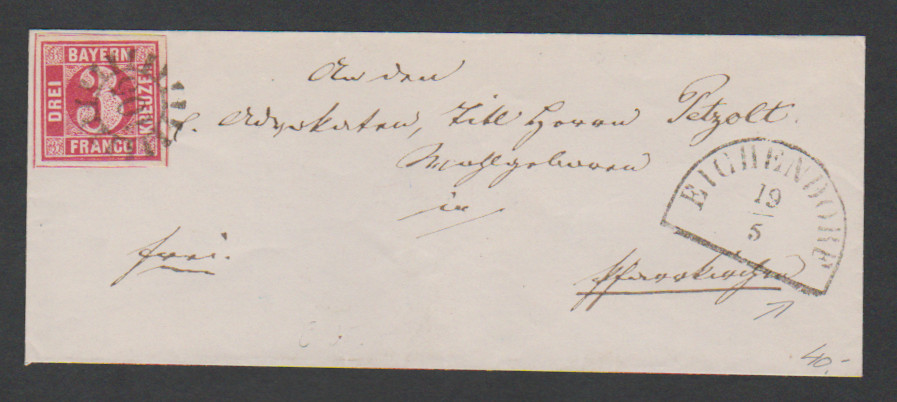 BAYERN
DREI
3
KREUZER
FRANCO
An den
k. Advokaten, Titl Herrn Petzolt.
Wohlgeboren
in
frei.
Pfarrkirchen
EICHENDORF
19
5
40,-